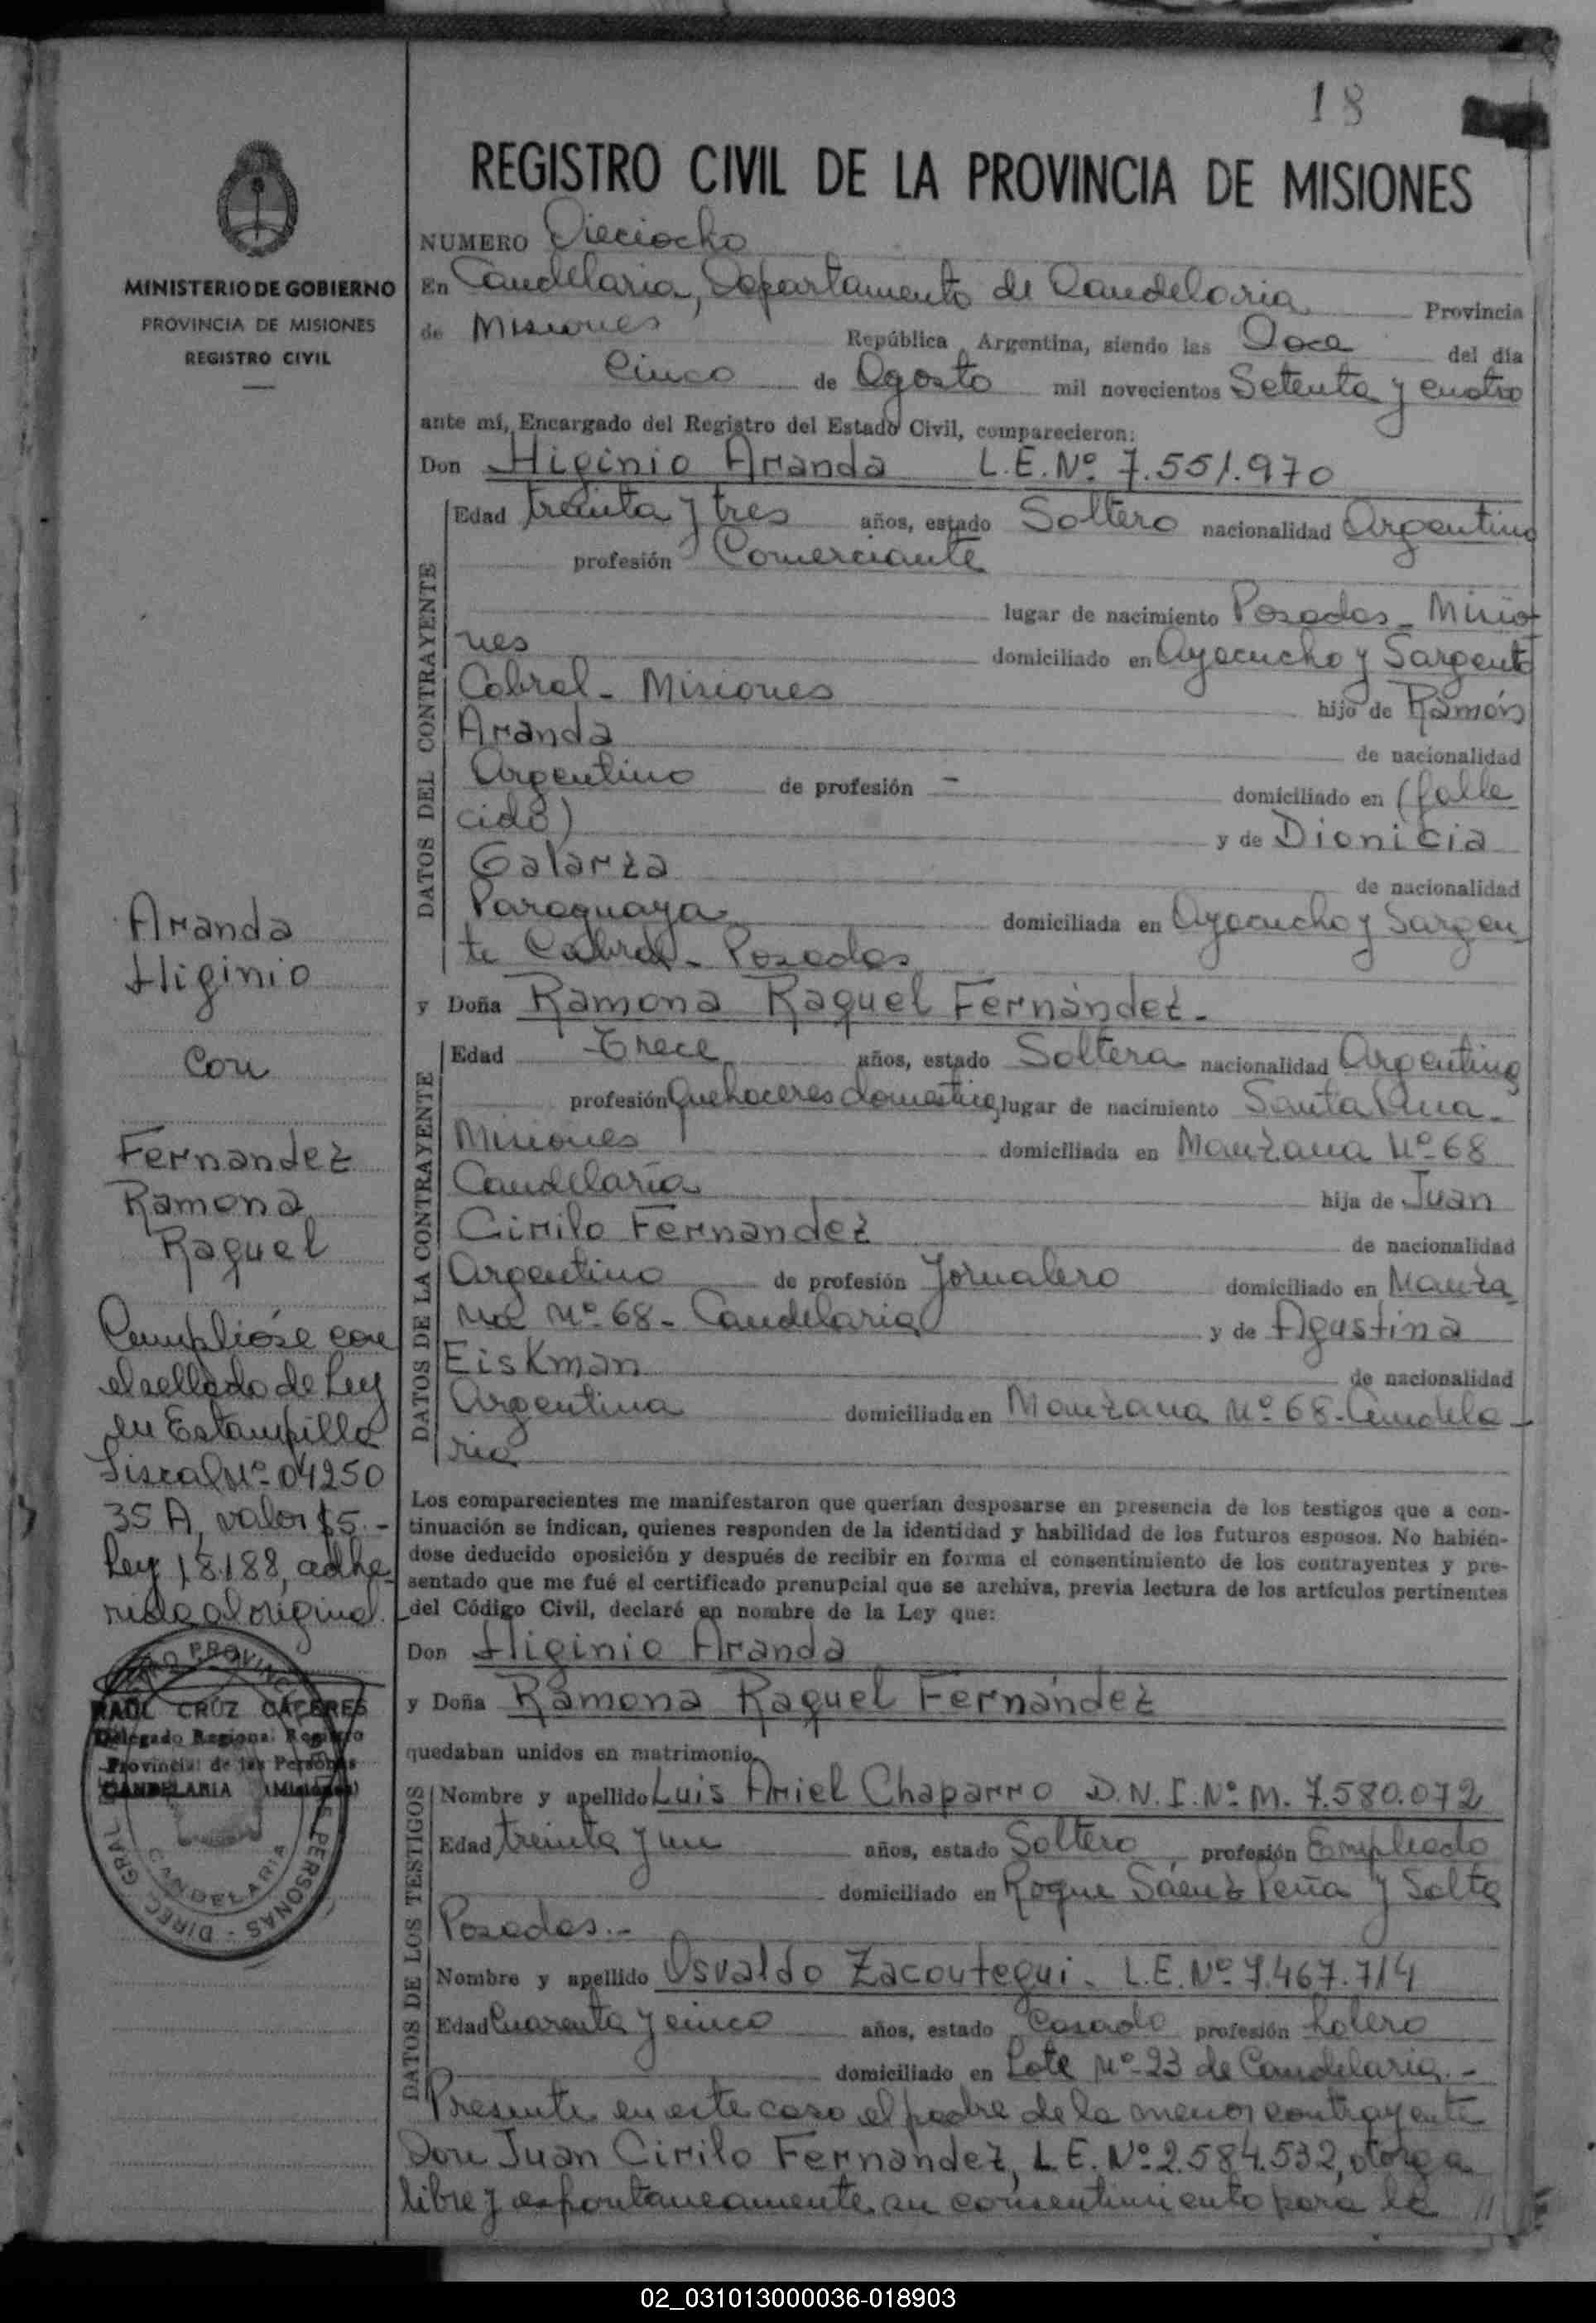 18
REGISTRO CIVIL DE LA PROVINCIA DE MISIONES
MINISTERIO DE GOBIERNO
PROVINCIA DE MISIONES
REGISTRO CIVIL
NUMERO Dieciocho
En Candelaria, Departamento de Candelaria Provincia
de Misiones República Argentina, siendo las Doce del día
Cinco de Agosto mil novecientos Setenta y cuatro
ante mí, Encargado del Registro del Estado Civil, comparecieron:
Don Higinio Aranda L.E.Nº 7.551.970
DATOS DEL CONTRAYENTE
Edad treinta y tres años, estado Soltero nacionalidad Argentino
profesión Comerciante
lugar de nacimiento Posadas - Misio
nes domiciliado en Ayacucho y Sargento
Cabral - Misiones hijo de Ramón
Aranda de nacionalidad
Argentino de profesión - domiciliado en (falle
cido) y de Dionicia
Galarza de nacionalidad
Paraguaya domiciliada en Ayacucho y Sargen
to Cabral - Posadas
y Doña Ramona Raquel Fernández.
DATOS DE LA CONTRAYENTE
Edad Trece años, estado Soltera nacionalidad Argentina
profesión Quehaceres domestico lugar de nacimiento Santa Ana -
Misiones domiciliada en Manzana Nº 68
Candelaria hija de Juan
Cirilo Fernandez de nacionalidad
Argentino de profesión Jornalero domiciliado en Manza
na Nº 68 - Candelaria y de Agustina
Eiskman de nacionalidad
Argentina domiciliada en Manzana Nº 68 - Candela -
ria
Los comparecientes me manifestaron que querían desposarse en presencia de los testigos que a con-
tinuación se indican, quienes responden de la identidad y habilidad de los futuros esposos. No habién-
dose deducido oposición y después de recibir en forma el consentimiento de los contrayentes y pre-
sentado que me fué el certificado prenupcial que se archiva, previa lectura de los artículos pertinentes
del Código Civil, declaré en nombre de la Ley que:
Don Higinio Aranda
y Doña Ramona Raquel Fernández
quedaban unidos en matrimonio.
DATOS DE LOS TESTIGOS
Nombre y apellido Luis Ariel Chaparro D.N.I.Nº M. 7.580.072
Edad treinta y un años, estado Soltero profesión Empleado
domiciliado en Roque Sáenz Peña y Salta
Posadas.-
Nombre y apellido Osvaldo Zacoutegui. L.E.Nº 7.467.714
Edad Cuarenta y cinco años, estado Casado profesión
domiciliado en Lote Nº 23 de Candelaria.-
Presente en este caso el padre de la menor contrayente
Don Juan Cirilo Fernández, L.E. Nº 2.584.532, otorga
libre y espontaneamente su consentimiento para la //
Aranda
Higinio
Con
Fernandez
Ramona
Raquel
Cumplióse con
el sellado de Ley
en Estampilla
Fiscal Nº 04250
35 A, valor $5.-
Ley 18.188, adhe
rida al original.
RAÚL CRUZ CÁCERES
Delegado Regional Registro
Provincial de las Personas
CANDELARIA (Misiones)
CANDELARIA
PERSONAS - DIREC. GRAL
02_031013000036-018903